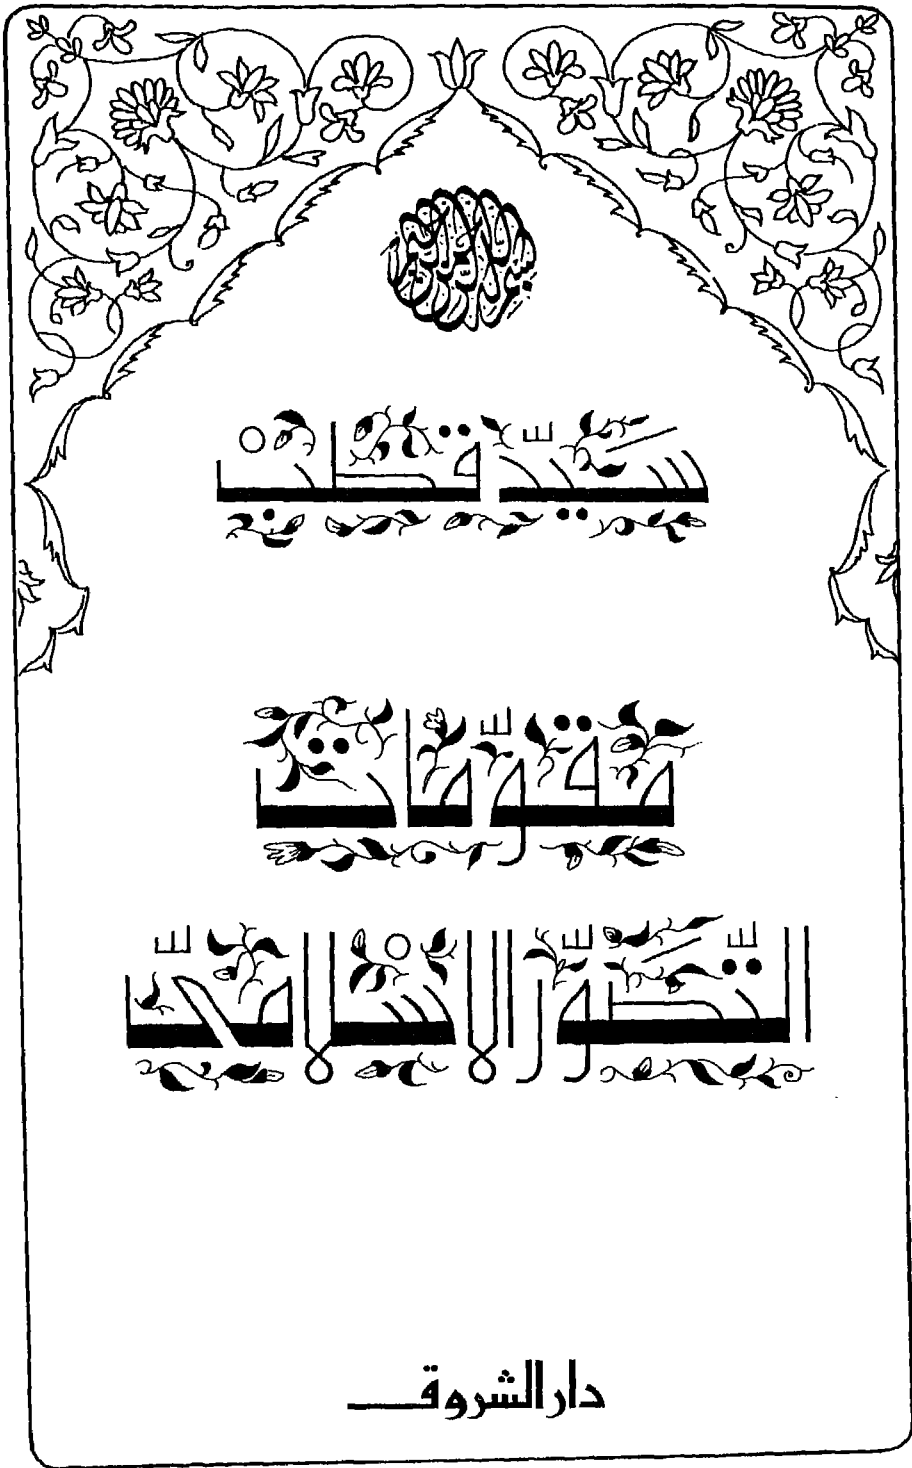 بسم الله الرحمن الرحيم
سَيّد قطبْ
مقوّمات
التّصوّر الإسْلاميّ
دار الشروق